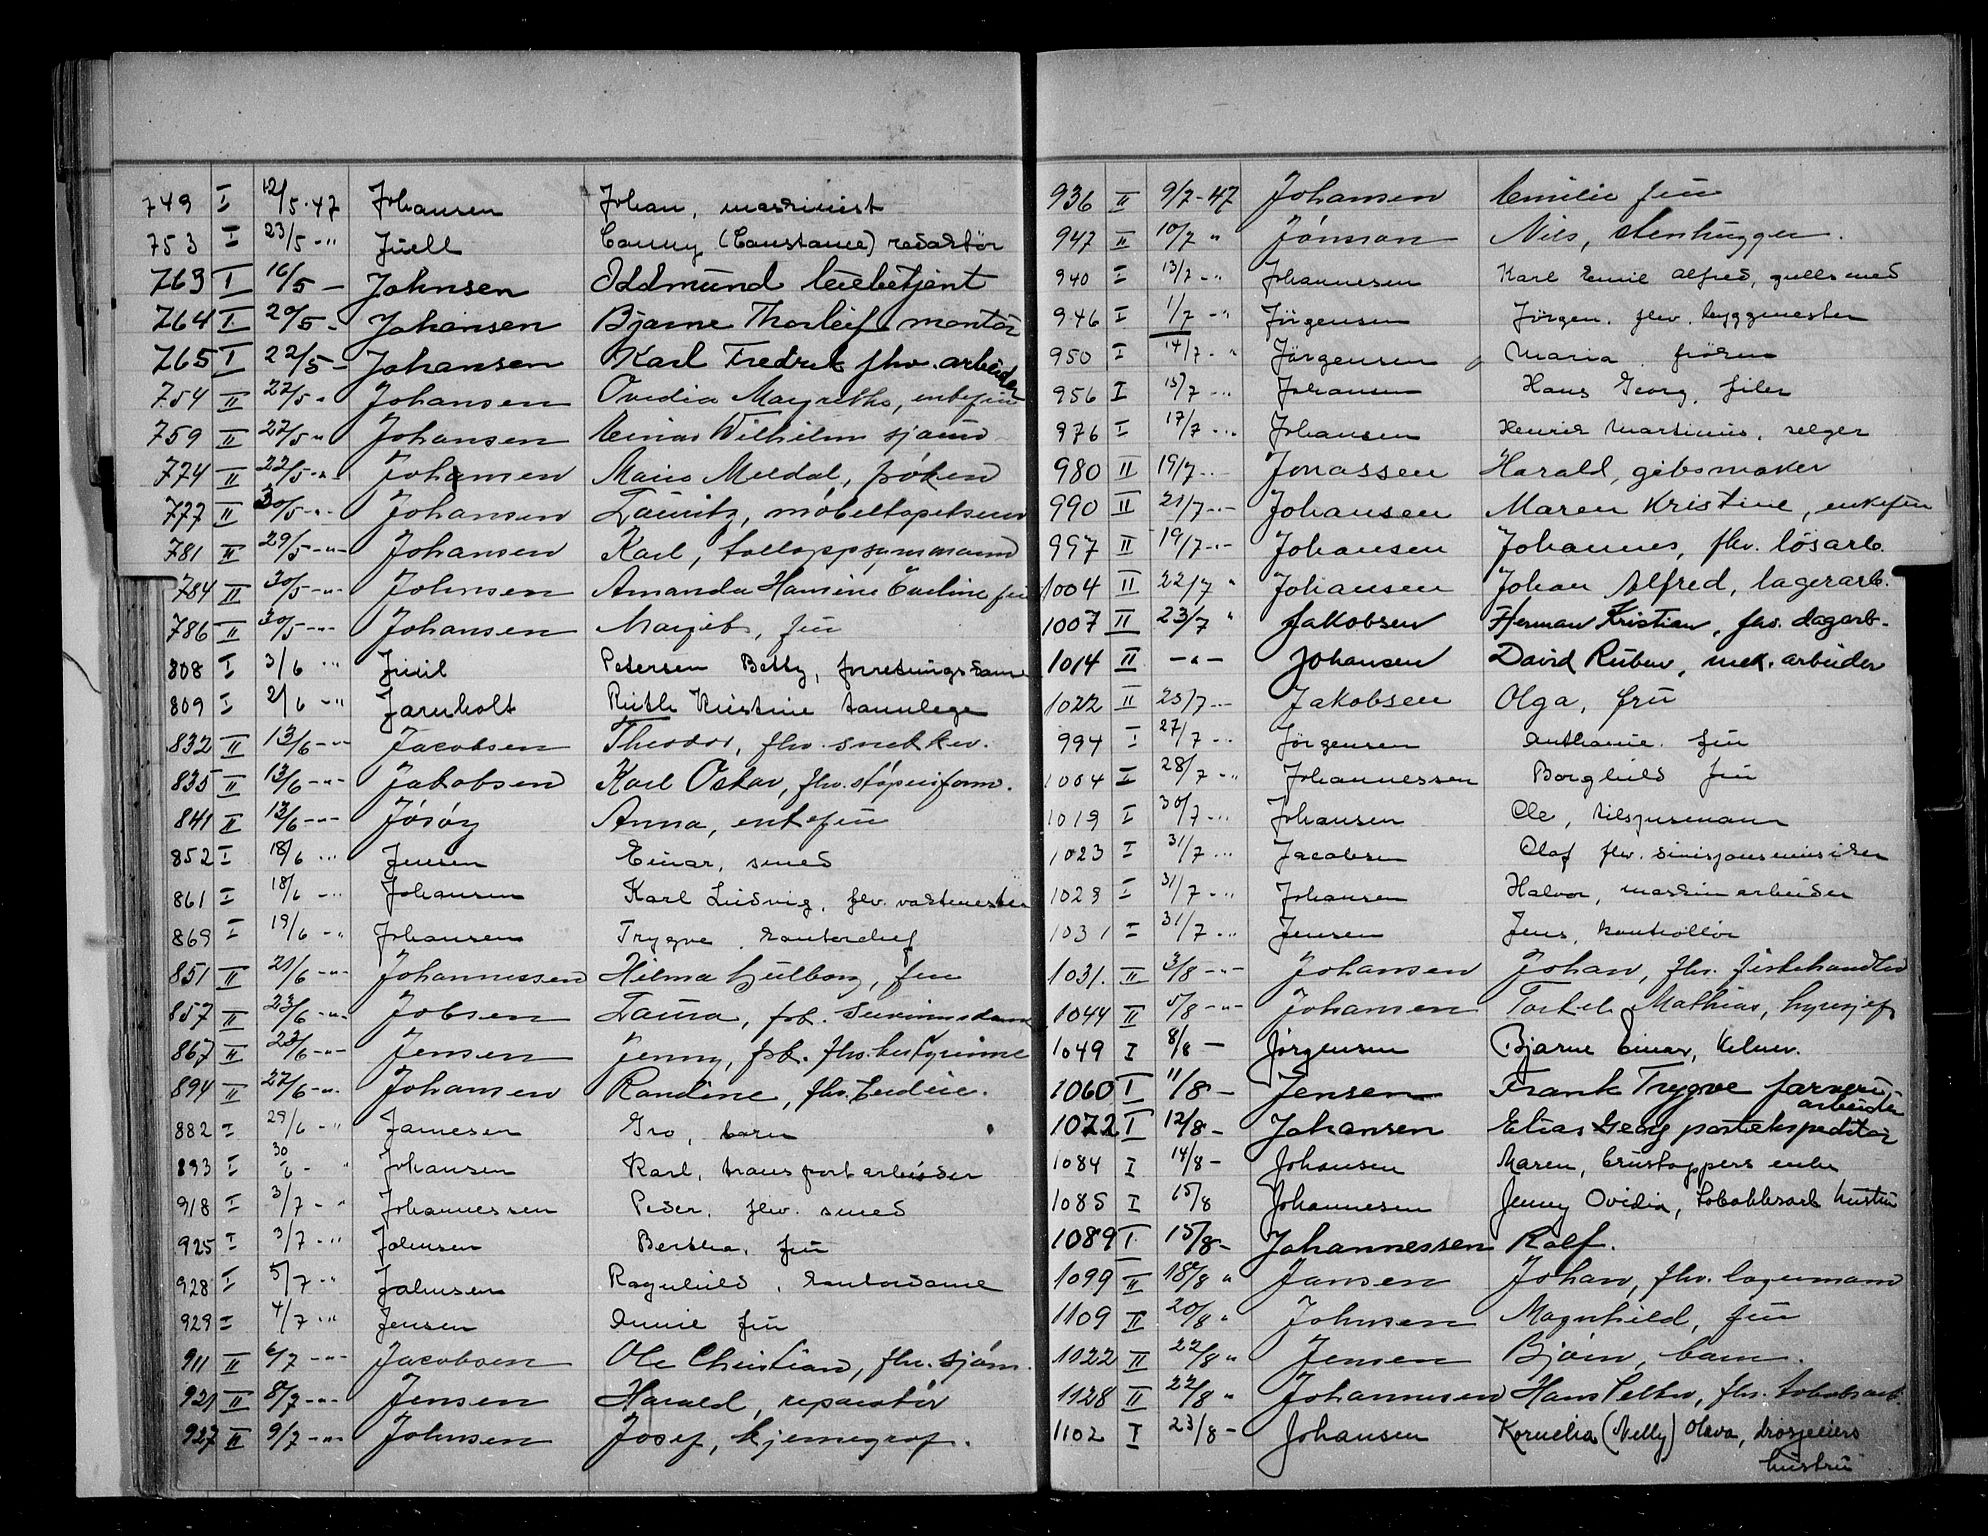 749 I 12/5-47 Johansen Johan, maskinist
753 I 23/5 -" Juell Conny (Constance) redaktör
763 I 16/5 - Johnsen Oddmund leiebetjent
764 I 20/5 - Johansen Bjarne Thorleif montör
765 I 22/5 - Johansen Karl Fredrik fhv. arbeider
754 II 22/5 " Johansen Ovidia Magrethe, enkefru
759 II 22/5 " Johansen Einar Wilhelm sjåum
774 II 22/5 -"- Johansen Meldal, fröken
777 II 30/5 -"- Johansen Lauritz, möbeltapetserer
781 II 29/5 -"- Johansen Karl, tolloppsynsmann
784 II 30/5 -"- Johnsen Amanda Hansine Eveline fru
786 II 30/5 -"- Johansen Margit, fru
808 I 3/6 -" Juul Petersen Betty, forretningsdame
809 I 2/6 -" Jarnholt Ruth Kristine tannlege
832 II 13/6 -"- Jacobsen Theodor, fhv. snekker.
835 II 13/6 -"- Jakobsen Karl Oskar, fhv. støperiform.
841 II 13/6 -"- Jøsøy Anna, enkefru
852 I 18/6 -" Jensen Einar, smed
861 I 18/6 -" Johansen Karl Ludvig, fhv. vaktmester
869 I 19/6 -" Johansen Trygve, kontorchef
851 II 21/6 -"- Johannessen Hilma Gulborg, fru
857 II 23/6 -"- Jobsen Laura, frk.
867 II 23/6 -"- Jensen Jenny, frk. fhv. bestyrinne
894 II 27/6 -"- Johansen Randine, fhv.
882 I 29/6 -" Jamesen Gro, barn
893 I 30/6 - " Johansen Karl, transportarbeider
918 I 3/7 - " Johannessen Peder, fhv. smed
925 I 3/7 -" Johnsen Bertha, fru
928 I 5/7 -" Johnsen Ragnhild, kontordame
929 I 4/7 -" Jensen Annie fru
911 II 6/7 -"- Jacobsen Ole Christian, fhv. sjøm.
921 II 8/7 -"- Jensen Harald, reparatör
927 II 9/7 -"- Johnsen Josef, kjemegraf.
936 II 9/7-47 Johansen Emilie fru
947 II 10/7 " Jónsson Nils, stenhugger.
940 I 13/7 -" Johannesen Karl Emil Alfred, gullsmed
946 I 1/7 -" Jörgensen Jörgen, fhv. byggmester
950 I 14/7 - " Jörgensen Maria, fröken
956 I 15/7 -" Johansen Hans Georg, filer
976 I 17/7 -" Johansen Henrik Martinius, selger
980 II 19/7 -"- Jonassen Harald, gibsmaker
990 II 21/7 -"- Johansen Maren Kristine, enkefru
997 II 19/7 -"- Johansen Johannes, fhv. løsarb.
1004 II 22/7 " Johansen Johan Alfred, lagerarb.
1007 II 23/7 " Jakobsen Herman Kristian, fhv. dagarb.
1014 II -"- Johansen David Ruben, mek. arbeider
1022 II 25/7 -"- Jakobsen Olga, fru
994 I 27/7 -" Jörgensen Anthonie, fru
1004 I 28/7 -" Johannessen Borghild fru
1019 I 30/7 -" Johansen Ole,
1023 I 31/7 -" Jacobsen Olaf fhv.
1023 I 31/7 -" Johansen Halvor, maskinarbeider
1031 I 31/7 -" Jensen Jens, kontrollör
1031. II 3/8 -"- Johansen Johan, fhv. fiskehandler
1044 II 5/8 -"- Johansen Torkel Mathias, hyresjef
1049 I 8/8 - Jørgensen Bjarne Einar, kelner.
1060 I 11/8 - Jensen Frank Trygve farveri-
arbeider
1072 I 12/8 - Johansen Elias Georg postekspeditör
1084 I 14/8 - Johansen Maren, enke
1085 I 15/8 Johannesen Jenny Ovidia, tobakksarb. hustru
1089 I 15/8 - Johannessen Rolf.
1099 II 18/8 " Jansen Johan, fhv. lagermann
1109 II 20/8 " Johnsen Magnhild, fru
1022 II 22/8 " Jensen Bjørn, barn.
1128 II 22/8 " Johannesen Hans Petter, fhv. tobaksarb.
1102 I 23/8 - Johansen Kornelia (Nelly) Olava, drosjeeiers
hustru